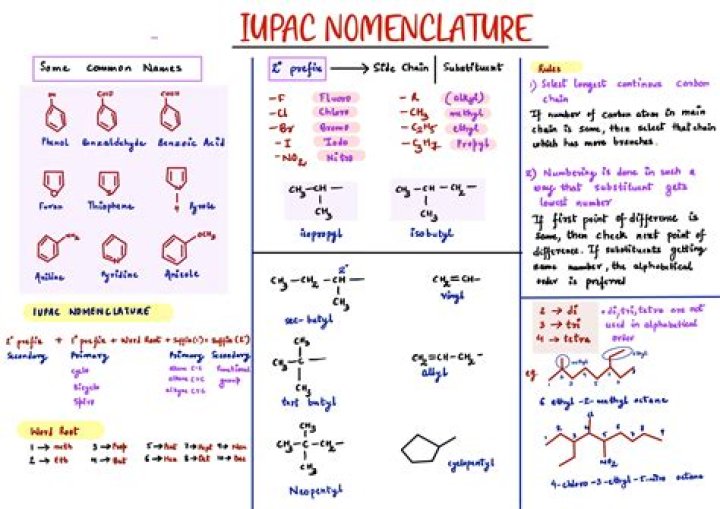 IUPAC NOMENCLATURE
Some Common Names
OH
CHO
COOH
Phenol Benzaldehyde Benzoic Acid
Furan Thiophene Pyrole
H
NH2
OCH3
Aniline Pyridine Anisole
IUPAC NOMENCLATURE
2° prefix + 1° prefix + Word Root + Suffix(1°) + Suffix (2°)
Secondary Primary Primary Secondary
cyclo
bicyclo
spiro
alkane C-C
alkene C=C
alkyne C≡C
functional
group
Word Root
1 → meth 3 → Prop 5 → Pent 7 → Hept 9 → Non
2 → Eth 4 → But 6 → Hex 8 → Oct 10 → Dec
2° prefix → Side Chain | Substituent
-F Fluoro
-Cl Chloro
-Br Bromo
-I Iodo
-NO2 Nitro
-R (alkyl)
-CH3 methyl
-C2H5 ethyl
-C3H7 Propyl
CH3-CH-
CH3
isopropyl
CH3-CH-CH2-
CH3
isobutyl
2°
CH3-CH2-CH-
CH3
sec-butyl
CH2=CH-
vinyl
CH3
CH3-C-
CH3
tert butyl
CH2=CH-CH2-
allyl
CH3
CH3-C-CH2-
CH3
Neopentyl
cyclopentyl
Rules
1) Select longest continous carbon
chain
If number of carbon atom in main
chain is same, then select that chain
which has more branches.
2) Numbering is done in such a
way that substituent gets
lowest number
If first point of difference is
same, then check next point of
difference. If substituents getting
same number, the alphabetical
order is preferred
2 → di
3 → tri
4 → tetra
• di, tri, tetra are not
used in alphabetical
order
eg
methyl
ethyl
6 ethyl-2-methyl octane
Cl
1 2 3 4 5 6 7 8
NO2
4-chloro-3-ethyl-5-nitro octane